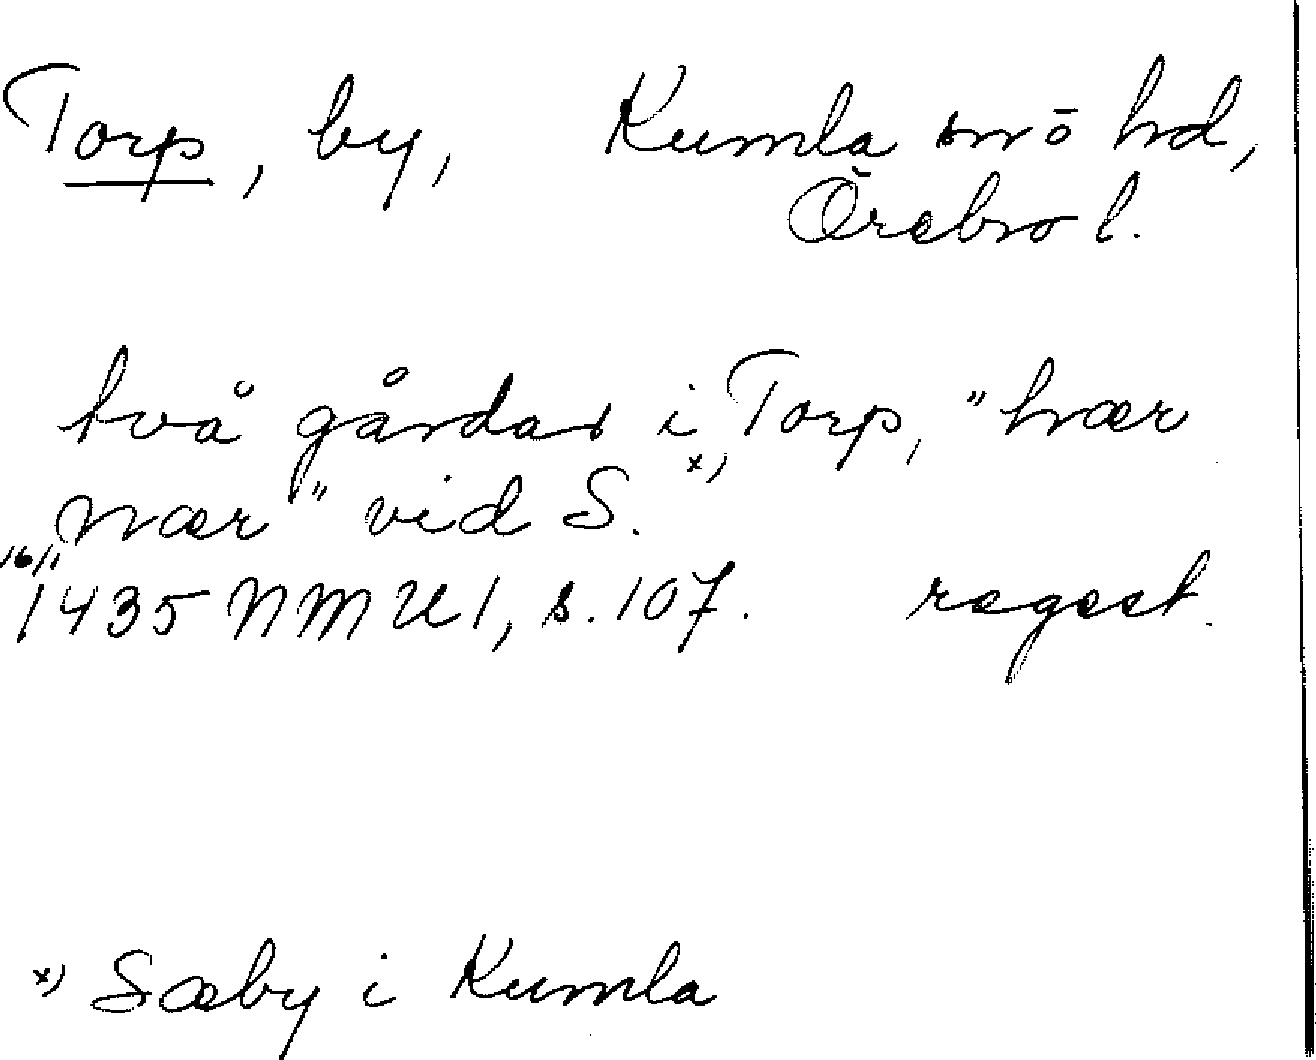 Torp, by, Kumla sn ö hd,
Örebro l.
två gårdar i Torp, "hvær
nær" vid S. x)
16/11
1435 NMU 1, s. 107. regest.
x) Sæby i Kumla